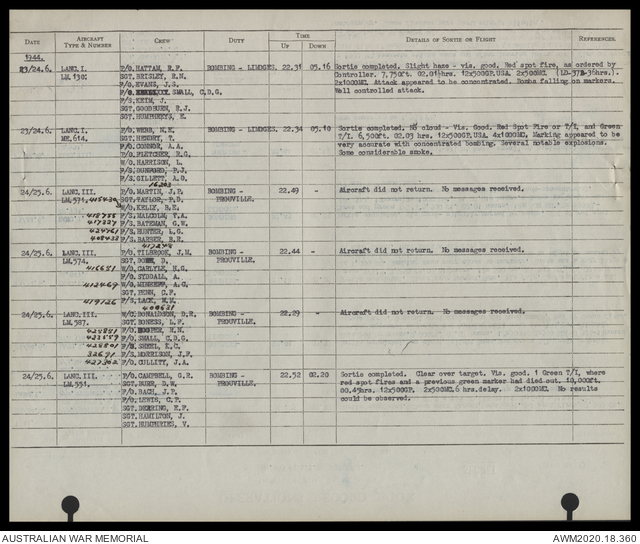 DATE AIRCRAFT TYPE & NUMBER CREW DUTY TIME UP DOWN DETAILS OF SORTIE OR FLIGHT REFERENCES.
1944.
23/24.6. LANC.I. P/O. HATTAM, R.F. BOMBING - LIMOGES. 22.31 05.16 Sortie completed. Slight haze - vis. good. Red spot fire, as ordered by
LM.130. SGT. BRISLEY, R.N. Controller. 7,750ft. 02.01½hrs. 12x500GP.USA. 2x500MC. (LD-37B-36hrs.).
F/O. EVANS, J.S. 2x1000MC. Attack appeared to be concentrated. Bombs falling on markers.
F/O. SMALL, C.D.G. Well controlled attack.
F/S. KEIM, J.
SGT. GOODBURN, R.J.
SGT. HUMPHREYS, E.
23/24.6. LANC.I P/O. WEBB, N.E. BOMBING - LIMOGES. 22.34 05.10 Sortie completed. No cloud - Vis. Good. Red Spot Fire or T/I, and Green
ME.614. SGT. HENDRY, T. T/I. 6,500ft. 02.09 hrs. 12x500GP.USA. 4x1000MC. Marking appeared to be
F/O. CONNOR, A.A. very accurate with concentrated Bombing. Several notable explosions.
P/O. FLETCHER, R.G. Some considerable smoke.
W/O. HARRISON, L.
F/S. P.J.
F/S. GILLETT, A.G.
16203
24/25.6. LANC.III. P/O. MARTIN, J.P. BOMBING - 22.49 - Aircraft did not return. No messages received.
LM.571. 415430 SGT. TAYLOR, P.D. PROUVILLE.
W/O. KELLY, B.E.
418755 F/S. MALCOLM, T.A.
417327 F/S. BATEMAN, G.W.
424761 F/S. HUNTER, L.G.
408433 F/S. BARBER, B.R.
417248
24/25.6. LANC.III. P/O. TILBROOK, J.M. BOMBING - 22.44 - Aircraft did not return. No messages received.
LM.574. SGT. D. PROUVILLE.
416651 W/O. CARLYLE, H.G.
F/O. SYDDALL, A.
412469 A.C.
SGT. PENN, C.F.
419126 F/S. LACK, M.M.
400631
24/25.6. LANC.III. W/C. DONALDSON, D.R. BOMBING - 22.29 - Aircraft did not return. No messages received.
LM.587. SGT. BONESS, L.F. PROUVILLE.
424881 H.N.
422659 F/O. SMALL, C.D.G.
428801 K.C.
32671 F/S. MORRISON, J.F.
427302 F/O. CULLITY, J.A.
24/25.6. LANC.III. P/O. CAMPBELL, G.R. BOMBING - 22.52 02.20 Sortie completed. Clear over target. Vis. good. 1 Green T/I, where
LM.551. SGT. BURR, D.W. PROUVILLE. red spot fires and a previous green marker had died out. 10,000ft.
P/O. BACH, J.P. 00.49hrs. 12x500GP. 2x500MC.6 hrs.delay. 2x1000MC. No results
P/O. LEWIS, C.P. could be observed.
SGT. E.F.
SGT. HAMILTON, J.
SGT. HUMPHRIES, V.
AUSTRALIAN WAR MEMORIAL AWM2020.18.360